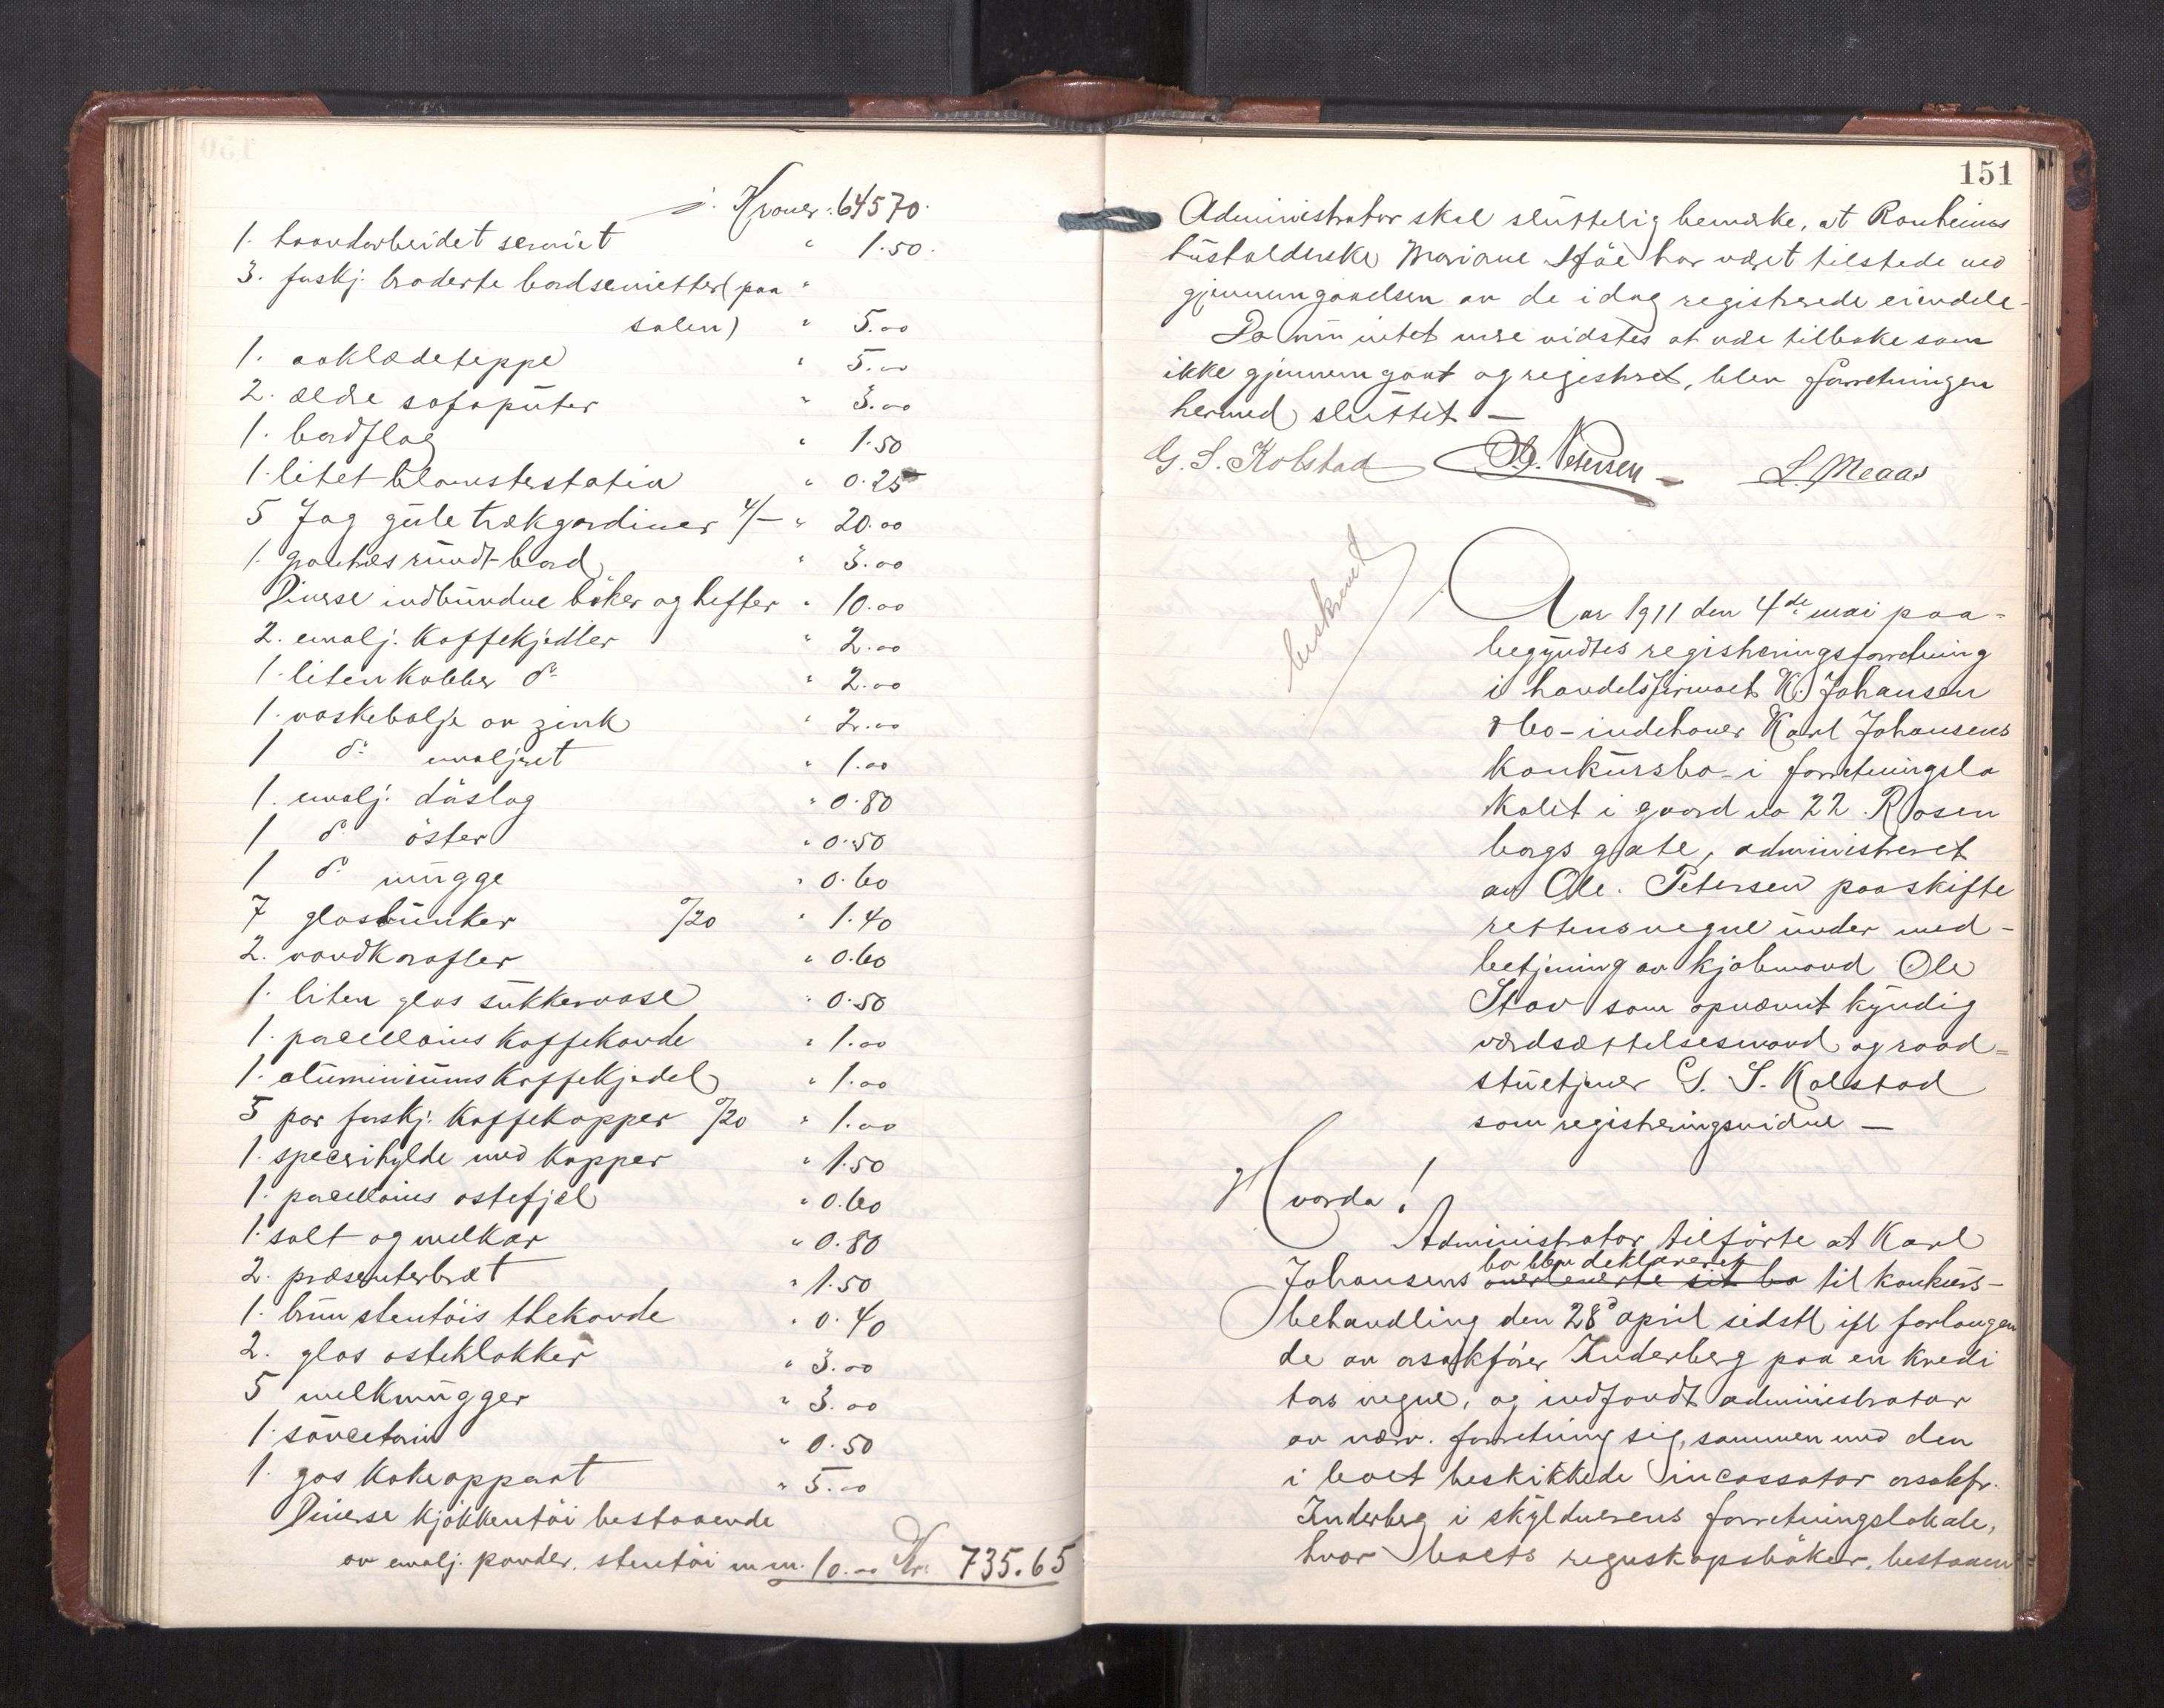 j. Kroner: 645 70.
1. haandarbeidet serviet " 1.50.
3. forskj. broderte bordservietter (paa "
salen) " 5.00
1. aaklædeteppe " 5.00
2. ældre sofaputer " 3.00
1. bordflag " 1.50
1. litet blomsterstativ " 0.25
5 Fag gule trækgardiner 4/- " 20.00
1. rundt bord " 3.00
Diverse indbundne böker og hefter " 10.00
2. emalj. Kaffekjedler " 2.00
1. liten Kobber do " 2.00
1. vaskebalje av zink " 2.00
1 do emaljeret " 1.00
1. emalj. dörslag " 0.80
1 do öster " 0.50
1 do mugge " 0.60
7 glasbunker 0/20 " 1.40
2. vandkarafler " 0.60
1. liten glas sukkervase " 0.50
1. porcellains Kaffekande " 1.00
1. aluminiums Kaffekjedel " 1.00
5 par forskj: Kaffekopper 0/20 " 1.00
1. specerihylde med Kopper " 1.50
1. porcellains ostefjæl " 0.60
1. salt og melkar " 0.80
2. præsenterbræt " 1.50
1. brun stentöis thekande " 0.40
2. glas osteklokker " 3.00
5 melkmugger " 3.00
1. sauceterin " 0.50
1. gas Kokeapparat " 5.00
Diverse kjökkentöi bestaaende
av emalj. pander. stentöi m.m. 10.00 Kr. 735.65
151
Administrator skal sluttelig bemærke, at Ranheims
husholderske Mariane Sjöe har været tilstede ved
gjennemgaaelsen av de idag registrerede eiendele -
Da nu intet mere vidstes at være tilbake som
ikke gjennemgaat og registreret, blev forretningen
hermed sluttet -
G. S. Kolstad Ole. Petersen - L. Meaas
beskrevet
Aar 1911 den 4de mai paa-
begyndtes registreringsforretning
i handelsfirmaet K. Johansen
& Co - indehaver Karl Johansens
konkursbo - i forretningslo
kalet i gaard no 22 Rosen
borgs gate, administreret
av Ole. Petersen paa skifte
rettens vegne under med-
betjening av kjøbmand Ole
Stav som opnævnt kyndig
værdsættelsesmand og raad=
stuetjener G. S. Kolstad
som registreringsvidne -
Hvorda!
Administrator tilförte at Karl
bo blev deklareret
Johansens overleverte sit bo til konkurs-
behandling den 28de april sidstl ifl forlangen
de av osakförer Inderberg paa en kredi
tors vegne, og indfandt administrator
av nærv. forretning sig, sammen med den
i boet beskikkede incassator osakfr.
Inderberg i skyldnerens forretningslokale,
hvor boets regnskapsböker, bestaaen=